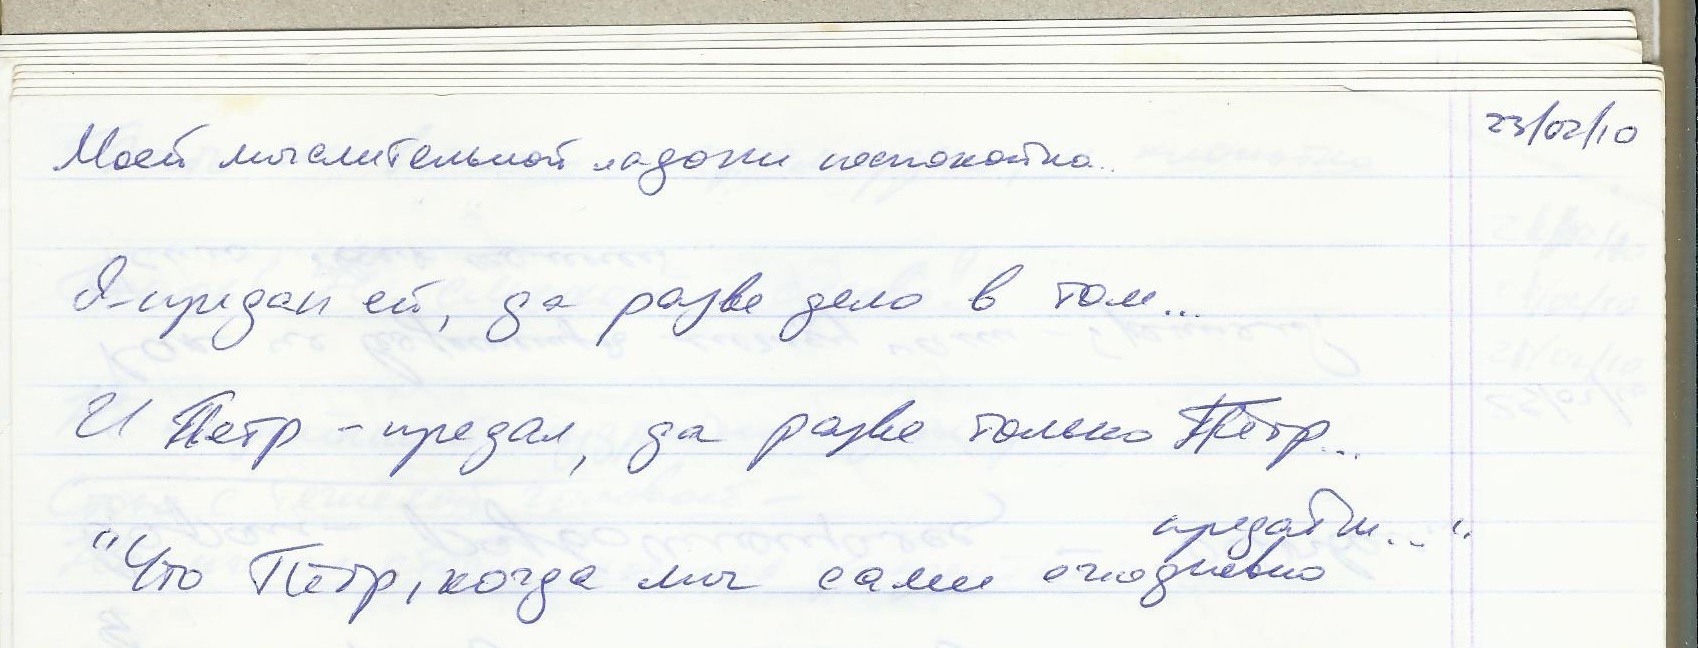 23/02/10
Моей мыслительной ладони неспокойно..
Я-предан ей, да разве дело в том...
И Петр - предал, да разве только Пётр...
"Что Пётр, когда мы сами ежедневно
предаём..."